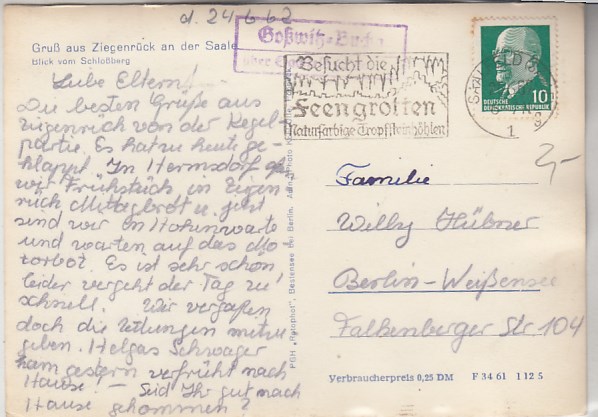 d. 24.6.62
Gruß aus Ziegenrück an der Saale
Blick vom Schloßberg
Goßwitz-Bucha
über
Besucht die
Feengrotten
Naturfarbige Tropfsteinhöhlen
DEUTSCHE
DEMOKRATISCHE REPUBLIK 10
Liebe Eltern! –
Die besten Grüße aus
Ziegenrück von der Kegel-
partie. Es hat zu heute ge-
klappt. In Hermsdorf
wir Frühstück, in Ziegen-
rück Mittagbrot u. jetzt
sind wir in Hohenwarte
und warten auf das Mo-
torbot. Es ist sehr schön
leider vergeht der Tag zu
schnell. Wir vergaßen
doch die Zeitungen mitzu-
geben. Helgas Schwager
kam gestern verfrüht nach
Hause. – Seid Ihr gut nach
Hause gekommen?
PGH „Rotophot", Bestensee bei Berlin,
2,-
Familie
Willy Hübner
Berlin-Weißensee
Falkenberger Str 104
Verbraucherpreis 0,25 DM F 34 61 112 5